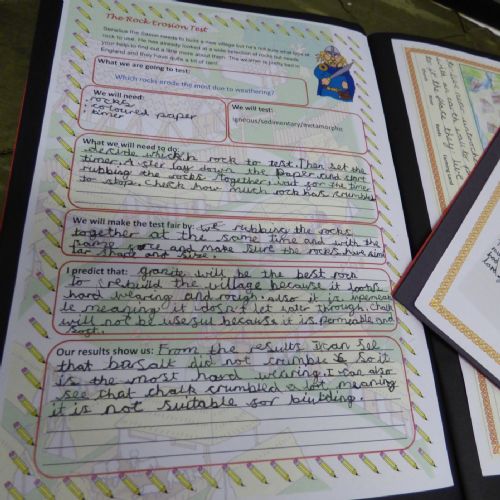 The Rock Erosion Test
Genseius the Saxon needs to build a new village but he's not sure what type of
rock to use. He has already looked at a wide selection of rocks but needs
your help to find out a little more about them. The weather is pretty bad in
England and they have quite a lot of rain!
What we are going to test:
Which rocks erode the most due to weathering?
We will need:
rocks
coloured paper
timer
We will test:
igneous/sedimentary/metamorphic
What we will need to do:
decide which rock to test. Then set the
timer. After lay down the paper and start
rubbing the rocks together, wait for the timer
to stop. Check how much rock has crumbled
We will make the test fair by: we rubbing the rocks
together at the same time and with the
same force and make sure the rocks have simi
lar shape and size.
I predict that: granite will be the best rock
to rebuild the village because it looks
hard wearing and rough. also it is
le meaning it doesn't let water through. Chalk
will not be useful because it is permeable and
Our results show us: From the results I can see
that basalt did not crumble so it
is the most hard wearing. I can also
see that chalk crumbled a lot meaning
it is not suitable for biulding.